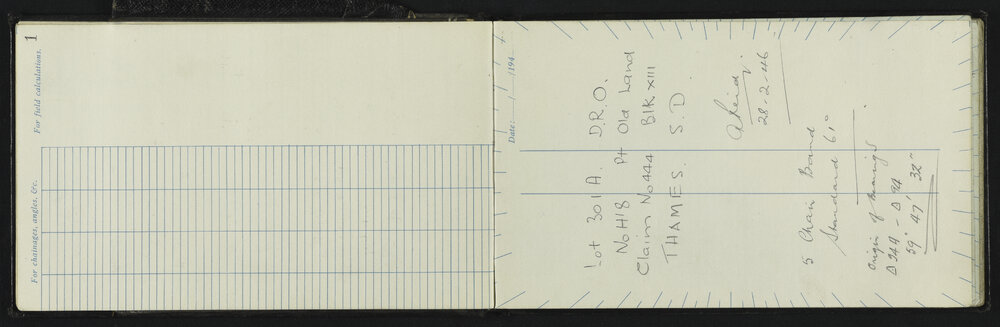 1
For field calculations.
For chainages, angles, &c.
Date: / /194
Lot 301A. D.R.O.
No H18 Pt Old Land
Claim No 444 Blk XIII
THAMES. S.D.
28-2-46
5 Chain Band
Standard 61°
Origin of Bearings
Δ 24A - Δ 9A
59° 47' 32"